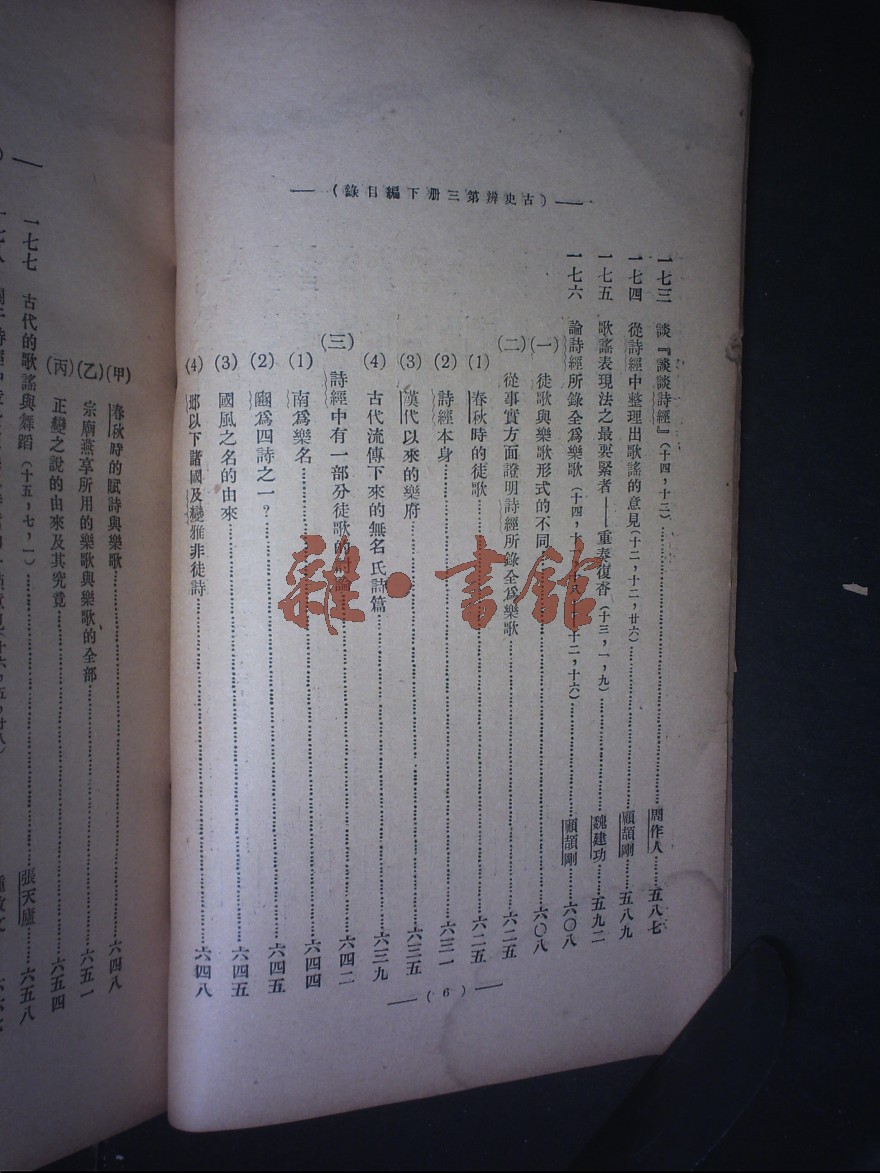 (古史辨第三册下編目錄)
一七三 談『談談詩經』(十四,十二)……周作人……五八七
一七四 從詩經中整理出歌謠的意見(十二,十二,廿六)……顧頡剛……五八九
一七五 歌謠表現法之最要緊者——重奏復沓(十三,一,九)……魏建功……五九二
一七六 論詩經所錄全爲樂歌(十四,十 十二,十六)……顧頡剛……六〇八
(一) 徒歌與樂歌形式的不同……六〇八
(二) 從事實方面證明詩經所錄全爲樂歌……六二五
(1) 春秋時的徒歌……六二五
(2) 詩經本身……六三一
(3) 漢代以來的樂府……六三五
(4) 古代流傳下來的無名氏詩篇……六三九
(三) 詩經中有一部分徒歌的討論……六四二
(1) 南爲樂名……六四四
(2) 豳爲四詩之一?……六四五
(3) 國風之名的由來……六四五
(4) 邶以下諸國及變雅非徒詩……六四八
(6)
(甲) 春秋時的賦詩與樂歌……六四八
(乙) 宗廟燕享所用的樂歌與樂歌的全部……六五一
(丙) 正變之說的由來及其究竟……六五四
一七七 古代的歌謠與舞蹈(十五,七,一)……張天廬……六五八
雜·書館